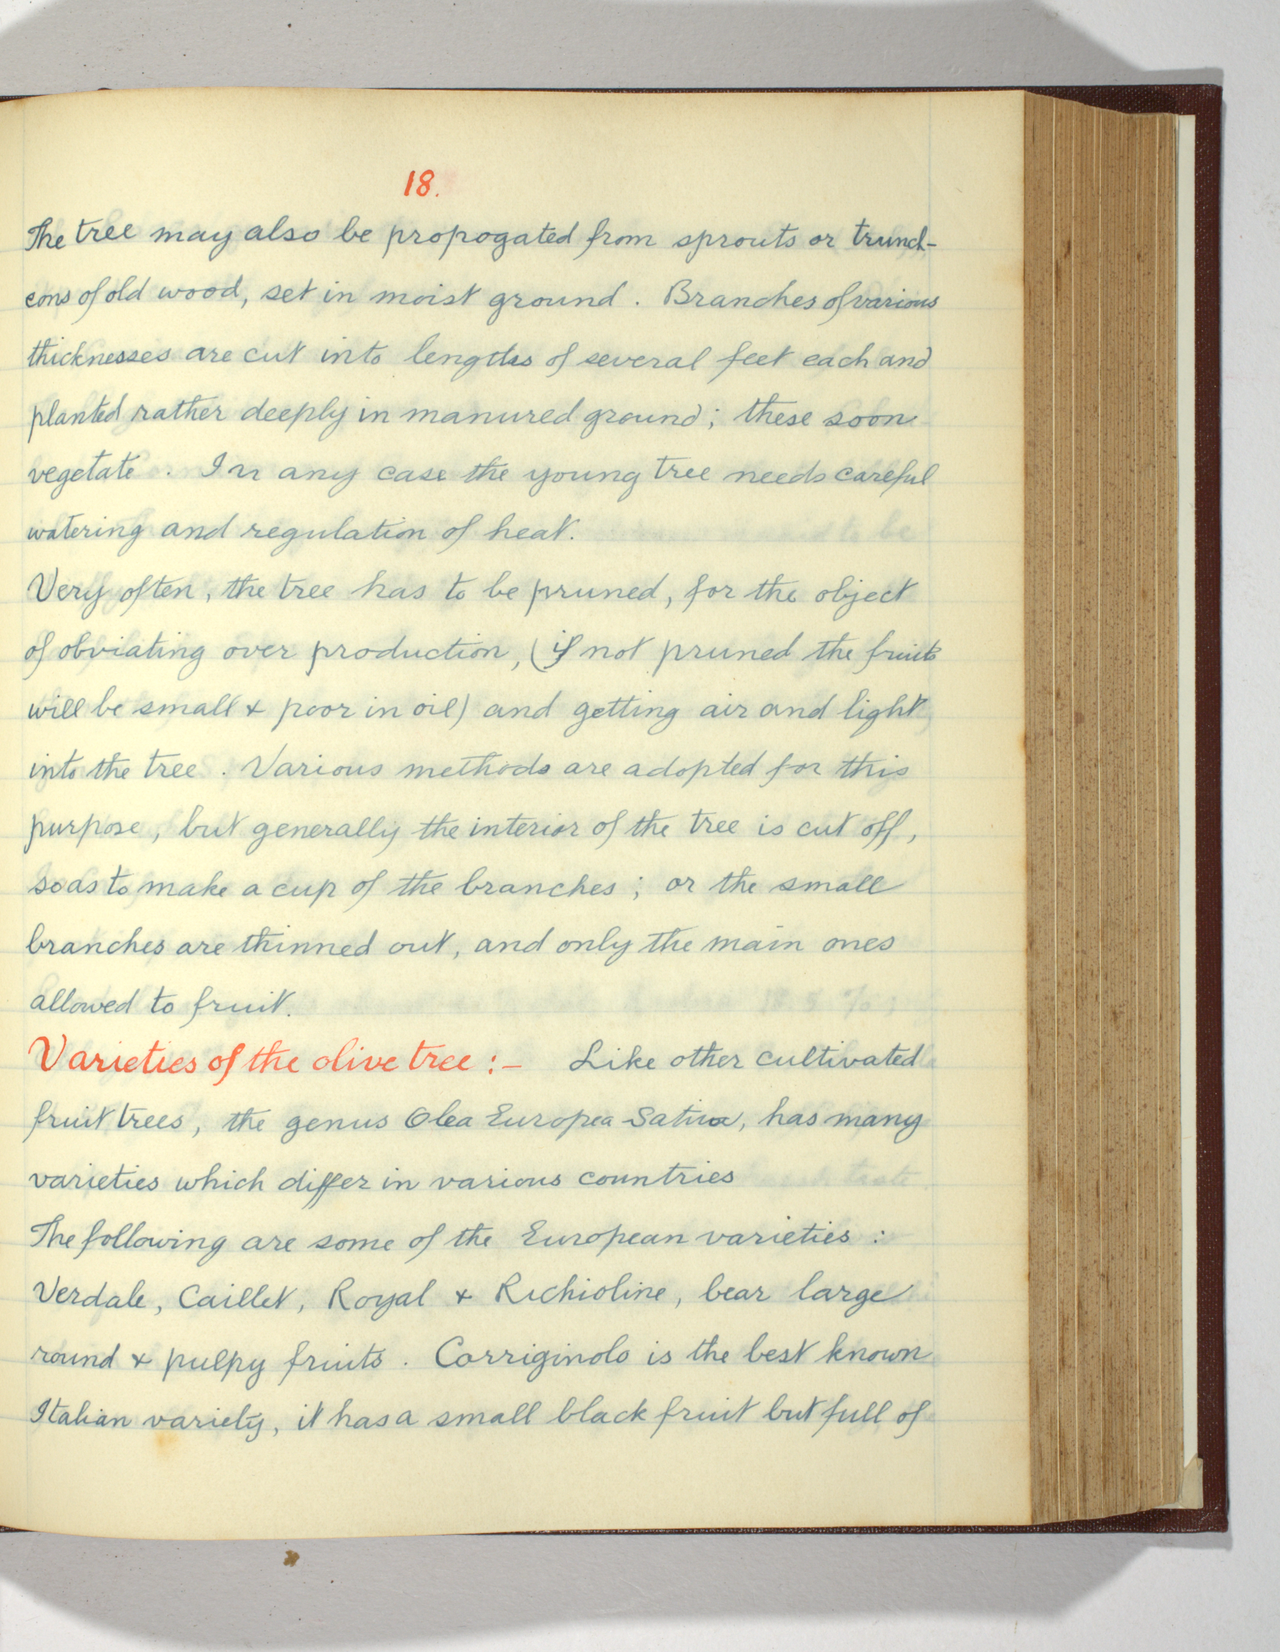 18.
The tree may also be propogated from sprouts or trunch-
eons of old wood, set in moist ground. Branches of various
thicknesses are cut into lengths of several feet each and
planted rather deeply in manured ground; these soon
vegetate. In any case the young tree needs careful
watering and regulation of heat.
Very often, the tree has to be pruned, for the object
of obviating over production, (if not pruned the fruits
will be small & poor in oil) and getting air and light
into the tree. Various methods are adopted for this
purpose, but generally the interior of the tree is cut off,
so as to make a cup of the branches; or the small
branches are thinned out, and only the main ones
allowed to fruit.
Varieties of the olive tree :- Like other cultivated
fruit trees, the genus Olea Europea Sativa, has many
varieties which differ in various countries
The following are some of the European varieties :
Verdale, Caillet, Royal & Richioline, bear large
round & pulpy fruits. Corriginolo is the best known
Italian variety, it has a small black fruit but full of